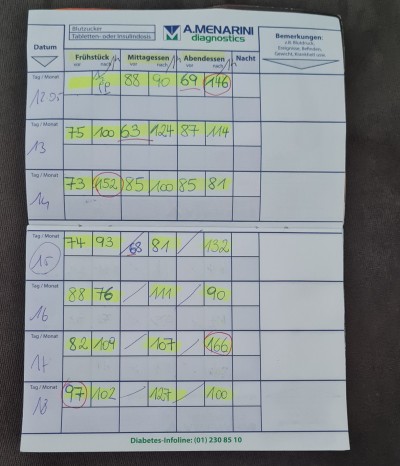 Blutzucker
Tabletten- oder Insulindosis
A.MENARINI
diagnostics
Bemerkungen:
z.B. Blutdruck,
Ereignisse, Befinden,
Gewicht, Krankheit usw.
Datum Frühstück Mittagessen Abendessen Nacht
vor nach vor nach vor nach
Tag / Monat
88 90 69 146
Tag / Monat
13 75 100 63 124 87 114
Tag / Monat
14 73 152 85 100 85 81
Tag / Monat
15 74 93 68 81 / 132
Tag / Monat
16 88 76 / 111 / 90
Tag / Monat
17 82 109 / 107 / 166
Tag / Monat
18 97 102 / 127 / 100
Diabetes-Infoline: (01) 230 85 10